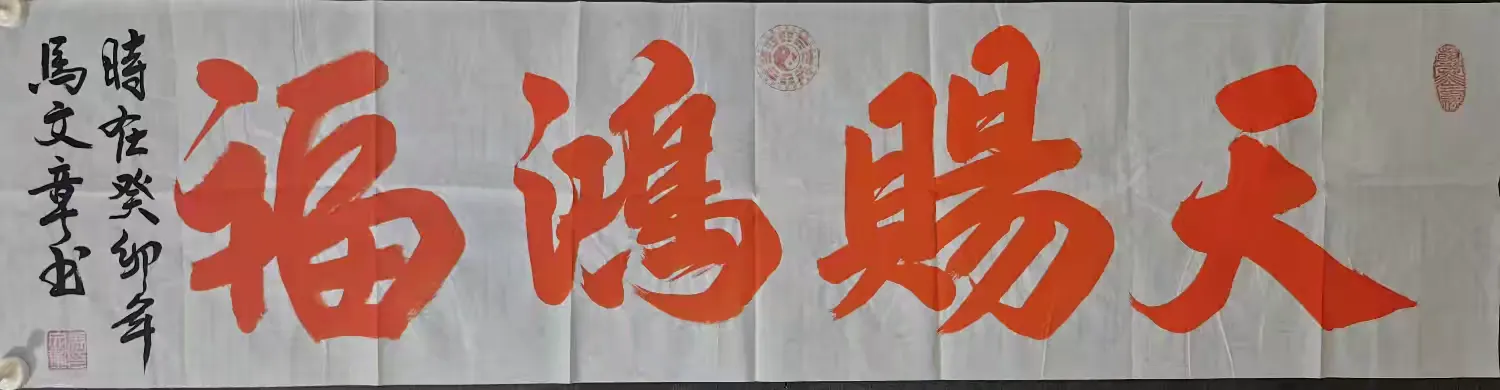 天賜鴻福
時在癸卯年
馬文章书